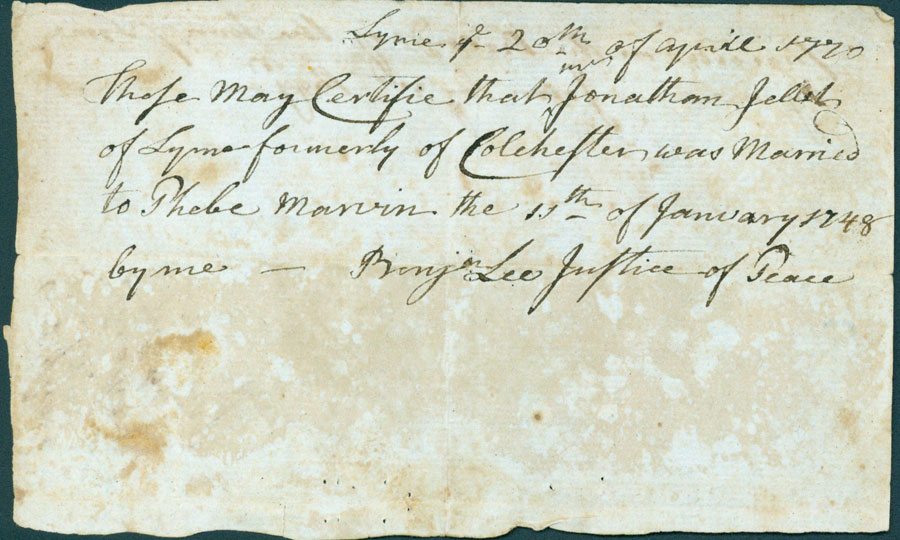 Lyme ye 20th of aprill 1770
These May Certifie that mr Jonathan Jellet
of Lyme formerly of Colchester was Married
to Phebe Marvin the 11th of January 1748
by me — Benjn Lee Justice of Peace